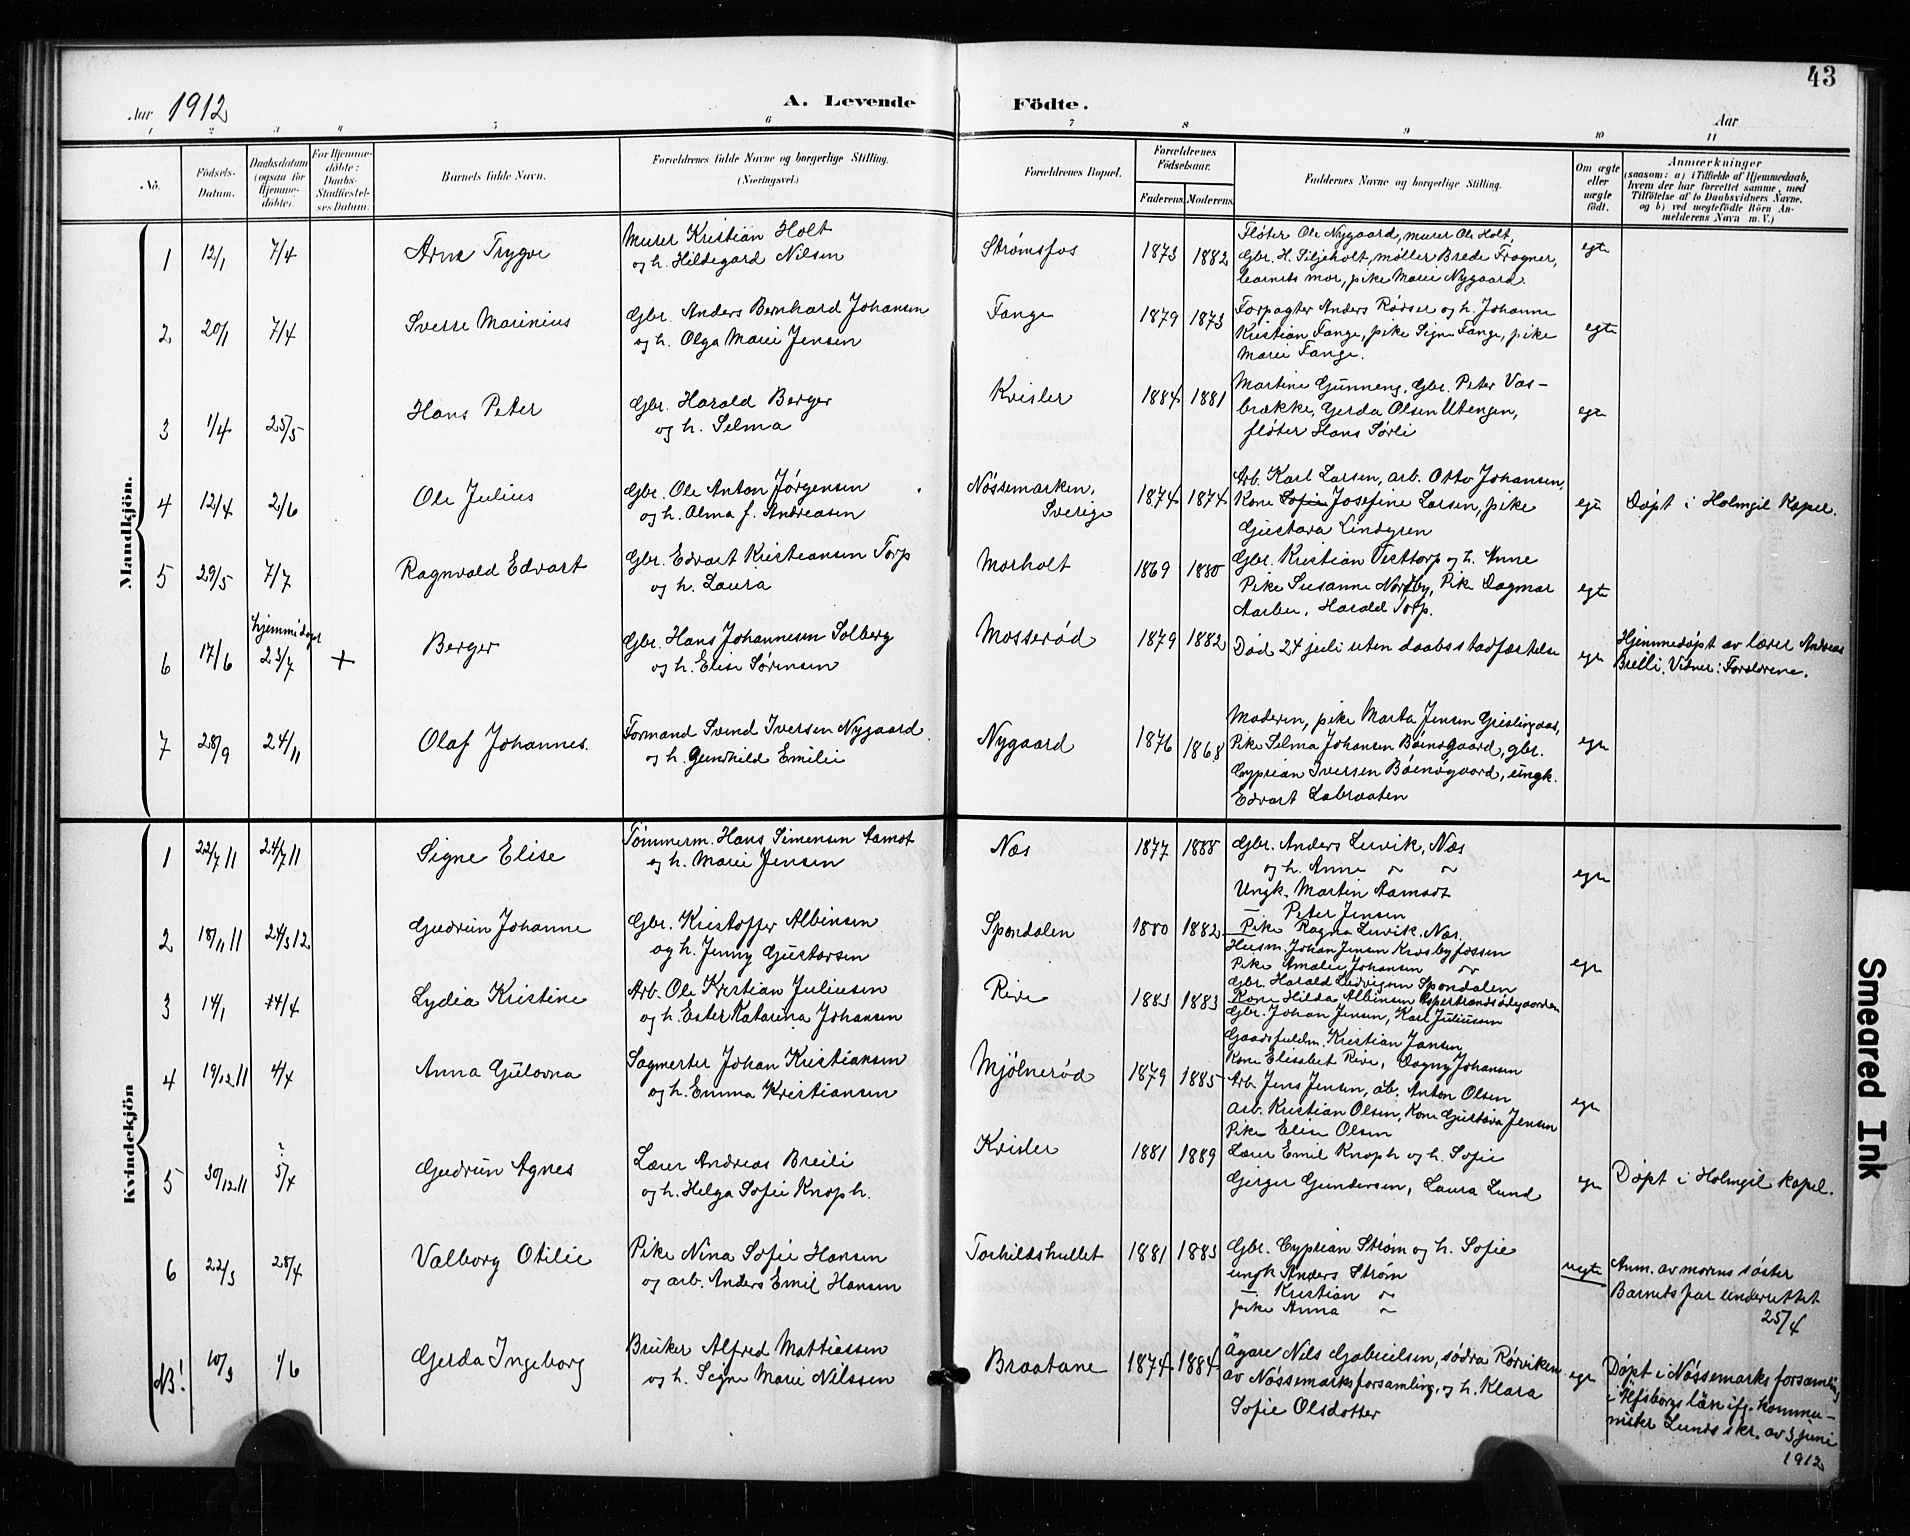 43
Aar 1912
A. Levende Födte.
Aar
1 2 3 4 5 6 7 8 9 10 11
No.
Födsels-Datum.
Daabsdatum (ogsaa for Hjemmedöbte).
For Hjemmedöbte: Daabs-Stadfæstelses Datum.
Barnets fulde Navn.
Forældrenes fulde Navne og borgerlige Stilling. (Næringsvei.)
Forældrenes Bopæl.
Forældrenes Födselsaar.
Faderens. Moderens.
Faddernes Navne og borgerlige Stilling.
Om ægte eller uægte födt.
Anmærkninger
(saasom: a) i Tilfælde af Hjemmedaab, hvem der har forrettet samme, med Tilföielse af to Daabsvidners Navne. og b) ved uægtefödte Börn Anmelderens Navn m. V.)
Mandkjön.
1 12/1 7/4 Arne Trygve
Murer Kristian Holt
og h. Hildegard Nilsen
Strømsfos 1873 1882
Fløter Ole Nygaard, murer Ole Holt,
Gbr. H. Siljeholt, møller Brede Frogner,
barnets mor, pike Marie Nygaard.
egte
2 20/1 7/4 Sverre Marinius
Gbr. Anders Bernhard Johansen
og h. Olga Marie Jensen
Fange 1879 1873
Forpagter Anders Rødser og h. Johanne
Kristian Fange, pike Signe Fange, pike
Marie Fange.
egte
3 1/4 25/5 Hans Peter
Gbr. Harald Berger
og h. Selma
Kvisler 1884 1881
Martine Gunneng, Gbr. Peter Vas-
brække, Gerda Olsen Utengen,
fløter Hans Sørli
egte
4 12/4 2/6 Ole Julius
Gbr. Ole Anton Jørgensen
og h. Alma f. Andreasen
Nössemarken,
Sverige
1874 1874
Arb. Karl Larsen, arb. Otto Johansen,
Kone Sofie Josefine Larsen, pike
Gustava Lindgren
egte
Døpt i Holmgil Kapel.
5 29/5 7/7 Ragnvald Edvart
Gbr. Edvart Kristiansen Torp
og h. Laura
Morholt 1869 1880
Gbr. Kristian Vesttorp og h. Anne
Pike Susanne Nordby, Pike Dagmar
Aarbu, Harald Torp.
egte
6 17/6 hjemmedøpt 23/7 + Berger
Gbr. Hans Johannesen Solberg
og h. Elise Sørensen
Mosserød 1879 1882
Død 24 juli uten daabsstadfæstelse
egte
Hjemmedøpt av lærer Andreas
Breili. Vidner: Forældrene.
7 28/9 24/11 Olaf Johannes.
Formand Svend Iversen Nygaard.
og h. Gunhild Emilie
Nygaard 1876 1868
Moderen, pike Marta Jensen Gislingaas,
Pike Selma Johansen Böensgaard, gbr.
Cyprian Iversen Böensgaard, ungk.
Edvart Labraaten
egte
Kvindekjön
1 22/7 11 24/7 11 Signe Elise
Tømmerm. Hans Simensen Aamot
og h. Marie Jensen
Næs 1877 1888
Gbr. Anders Lervik, Næs
og h. Anne " "
Ungk. Martin Aamodt
— Peter Jensen
Pike Ragna Lervik. Næs.
egte
2 18/11 11 24/3 12 Gudrun Johanne
Gbr. Kristoffer Albinsen
og h. Jenny Gustavsen
Spondalen 1880 1882
Husm. Johan Jensen Krosbyfossen
Pike Amalie Johansen "
Gbr. Harald Ludvigsen Spondalen
Kone Hilda Albinsen
egte
3 14/1 4/4 Lydia Kristine
Arb. Ole Kristian Juliusen
og h. Ester Katarina Johansen
Rive 1883 1883
Gbr. Johan Jensen, Karl Juliussen
Gaardsfuldm. Kristian Jansen
Kone Elisabet Rive, Dagny Johansen
4 19/12 11 4/4 Anna Gulovna
Sagmester Johan Kristiansen
og h. Emma Kristiansen
Mjølnerød 1879 1885
Arb. Jens Jensen, arb. Anton Olsen
Arb. Kristian Olsen, Kone Gustava Jensen
Pike Elise Olsen
egte
5 30/12 11 ? 5/4 Gudrun Agnes
Lærer Andreas Breili
og h. Helga Sofie Knoph.
Kvisler 1881 1889
Lærer Emil Knoph og h. Sofie
Gerger Gundersen, Laura Lund
egte
Døpt i Holmgil kapel.
6 22/3 28/4 Valborg Otilie
Pike Nina Sofie Hansen
og arb. Anders Emil Hansen
Torhildshullet 1881 1883
Gbr. Cyprian Strøm og h. Sofie
ungk Anders Strøm
— Kristian "
pike Anna "
uegte
Anm. av morens søster
Barnets far underrettet
25/4
NB! 10/3 1/6 Gerda Ingeborg
Bruker Alfred Mattiassen
og h. Signe Marie Nilssen
Braatane 1874 1884
Ägare Nils Gabrielsen, södra Rörviken
av Nössemarks forsamling, og h. Klara
Sofie Olsdotter
egte
Døpt i Nössemarks forsamling
i Elfsborgs län ifg. kommu-
nister Lunds skr. av 3 juni
1912
Smeared Ink